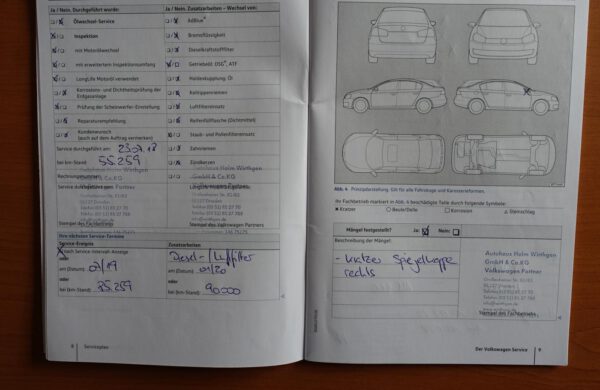 Ja / Nein. Durchgeführt wurde:
Ölwechsel-Service
Inspektion
mit Motorölwechsel
mit erweitertem Inspektionsumfang
LongLife Motoröl verwendet
Korrosions- und Dichtheitsprüfung der Erdgasanlage
Prüfung der Scheinwerfer-Einstellung
Reparaturempfehlung
Kundenwunsch
(auch auf dem Auftrag vermerken)
Service durchgeführt am:
bei km-Stand: 55.259
Rechnungsnummer:
Service durchgeführt von:
Stempel des
Ja / Nein. Zusatzarbeiten – Wechsel von:
AdBlue®
Bremsflüssigkeit
Dieselkraftstofffilter
Getriebeöl: DSG®, ATF
Haldexkupplung: Öl
Keilrippenriemen
Luftfiltereinsatz
Reifenfüllflasche (Dichtmittel)
Staub- und Pollenfiltereinsatz
Zahnriemen
Zündkerzen
Volkswagen Partners
Ihre nächsten Service-Termine
Service-Ereignis
nach Service-Intervall-Anzeige
oder
am (Datum) 07/19
oder
bei (km-Stand): 85.259
Zusatzarbeiten
Diesel- / Luftfilter
am (Datum) 07/20
oder
bei (km-Stand): 90.000
8 Serviceplan
Abb. 4 Prinzipdarstellung: Gilt für alle Fahrzeuge und Karosserieformen.
Ihr Fachbetrieb markiert in Abb. 4 beschädigte Teile durch folgende Symbole:
✕ Kratzer ○ Beule/Delle □ Korrosion △ Steinschlag
Mängel festgestellt? Ja: Nein:
Beschreibung der Mängel:
- Kratzer Spiegelkappe
rechts
Autohaus Holm Wirthgen
GmbH & Co.KG
Volkswagen Partner
Stempel des Fachbetriebs
Der Volkswagen Service 9